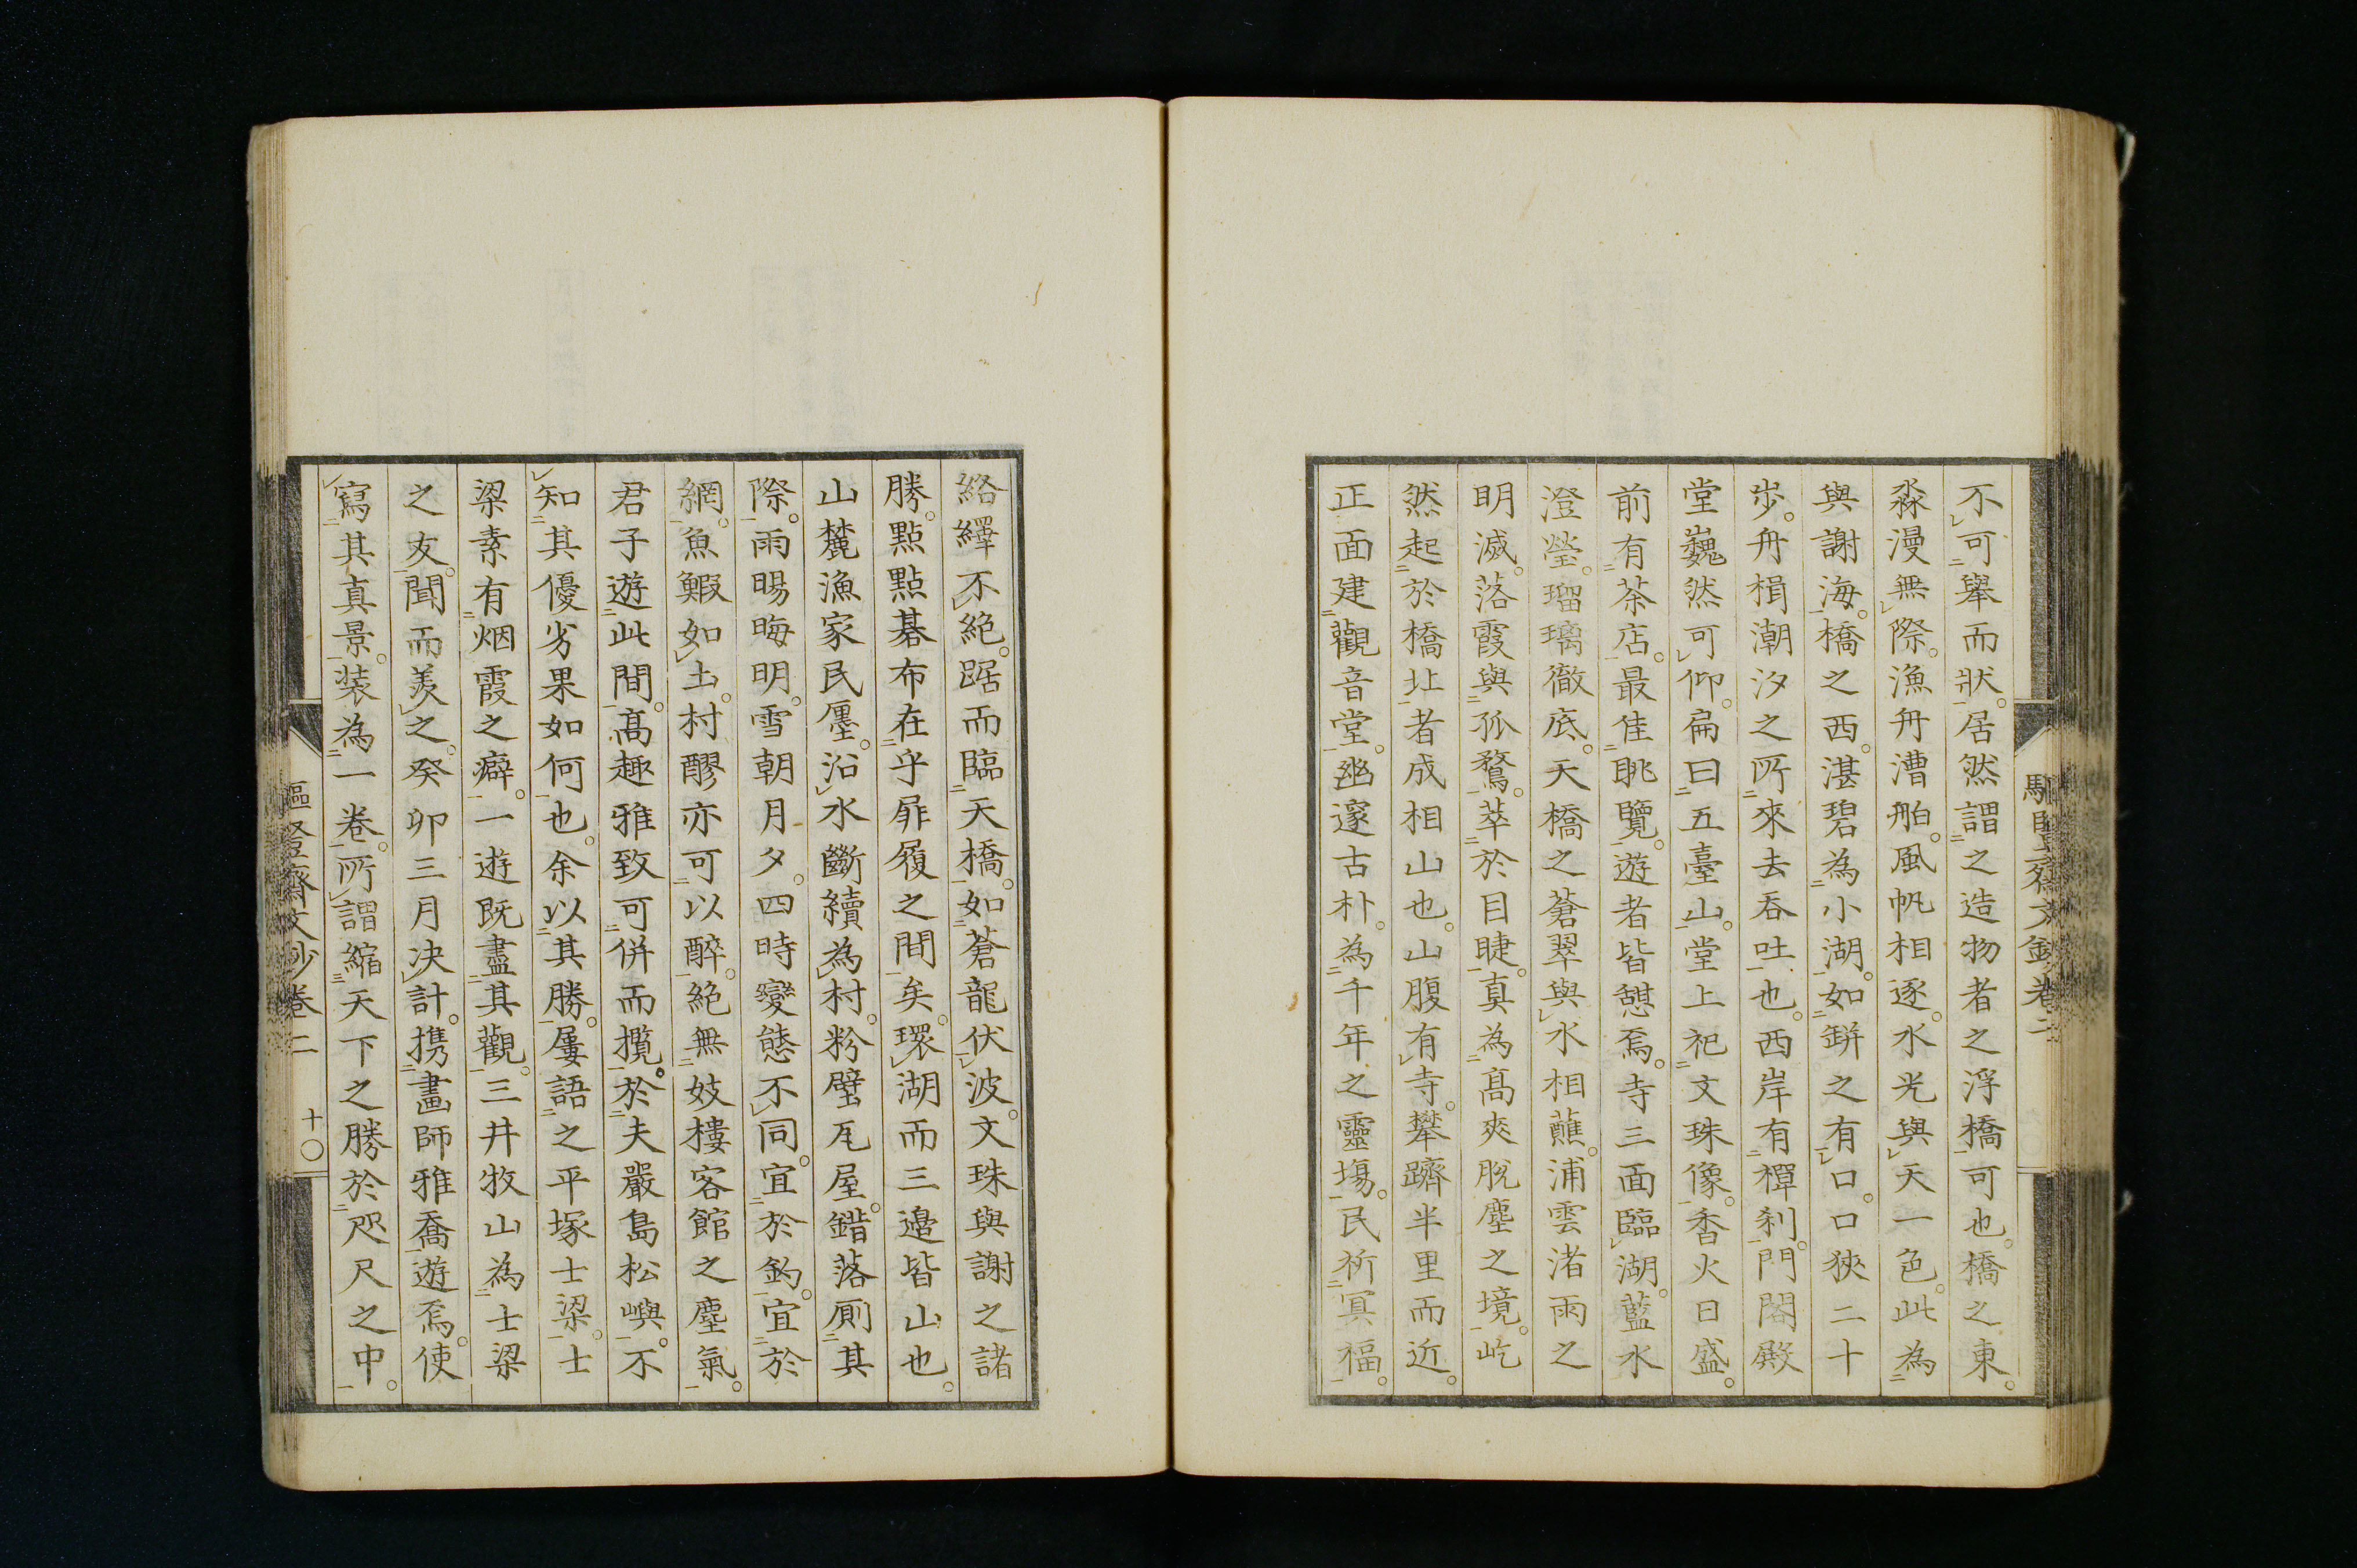 不可舉而狀。居然謂之造物者之浮橋可也。橋之東。
淼漫無際。漁舟漕舶。風帆相逐。水光與天一色。此為
與謝海。橋之西。湛碧為小湖。如缾之有口。口狹二十
步。舟楫潮汐之所來去吞吐也。西岸有禪刹。門閣殿
堂巍然可仰。扁曰五臺山。堂上祀文珠像。香火日盛。
前有茶店。最佳眺覽。遊者皆憩焉。寺三面臨湖。藍水
澄瑩。瑠璃徹底。天橋之蒼翠與水相蘸。浦雲渚雨之
明滅。落霞與孤鶩。萃於目睫。真為高爽脫塵之境。屹
然起於橋址者成相山也。山腹有寺。攀躋半里而近。
正面建觀音堂。幽邃古朴。為千年之靈場。民祈冥福。
絡繹不絕。踞而臨天橋。如蒼龍伏波。文珠與謝之諸
勝。點點碁布在乎屝履之間矣。環湖而三邉皆山也。
山麓漁家民廛。沿水斷續為村。粉壁瓦屋。錯落厠其
際。雨暘晦明。雪朝月夕。四時變態不同。宜於釣。宜於
網。魚鰕如土。村醪亦可以醉。絕無妓樓客館之塵氣。
君子遊此間。高趣雅致可併而攬。於夫嚴島松嶼。不
知其優劣果如何也。余以其勝。屢語之平塚士梁。士
梁素有烟霞之癖。一遊既盡其觀。三井牧山為士梁
之友。聞而羨之。癸卯三月決計。携畫師雅喬遊焉。使
寫其真景。装為一卷。所謂縮天下之勝於咫尺之中。
齋文鈔卷二
十〇